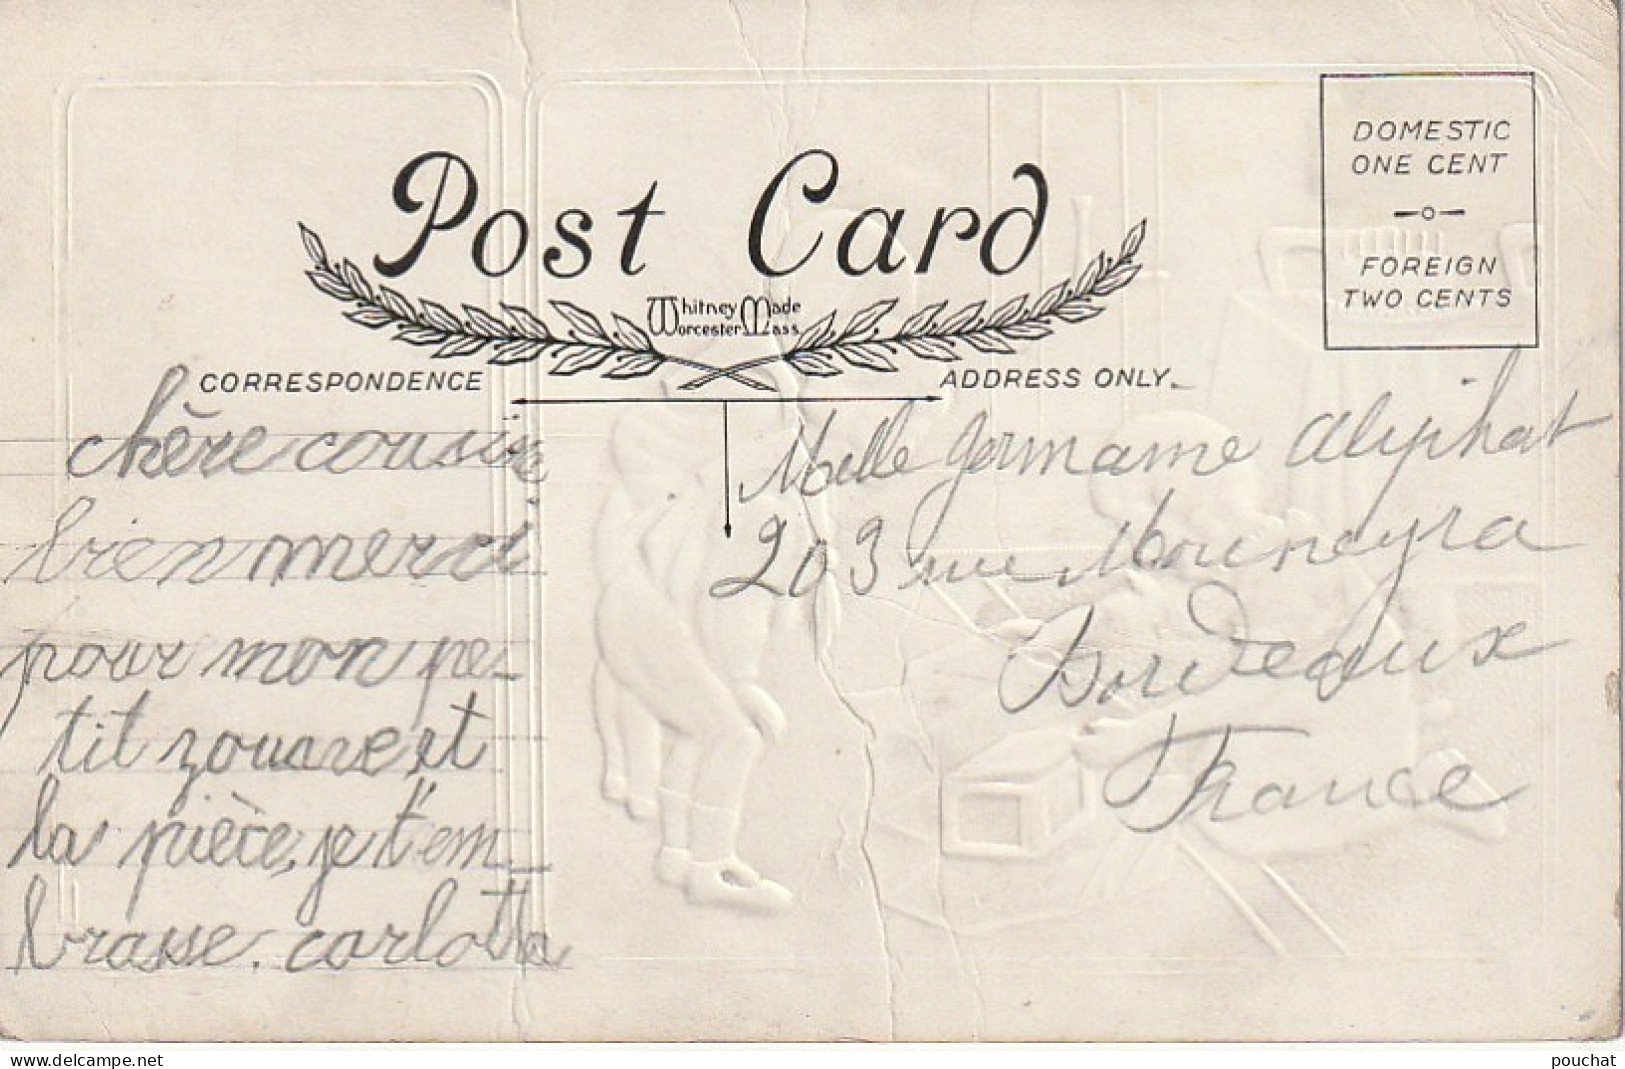 Post Card
Whitney Made
Worcester Mass
DOMESTIC
ONE CENT
FOREIGN
TWO CENTS
CORRESPONDENCE
ADDRESS ONLY
chère cousine
bien merci
pour mon pe-
tit zouave et
la pièce, je t'em-
brasse. carlotta
Melle Germaine Aliphat
203 rue Mouneyra
Bordeaux
France
www.delcampe.net
pouchat